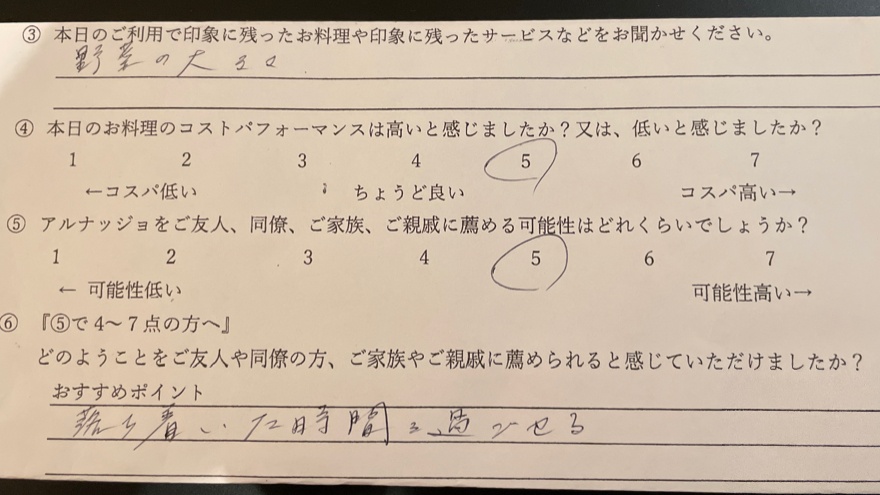 ③ 本日のご利用で印象に残ったお料理や印象に残ったサービスなどをお聞かせください。
野菜の大きさ
④ 本日のお料理のコストパフォーマンスは高いと感じましたか？又は、低いと感じましたか？
1 2 3 4 5 6 7
←コスパ低い ちょうど良い コスパ高い→
⑤ アルナッジョをご友人、同僚、ご家族、ご親戚に薦める可能性はどれくらいでしょうか？
1 2 3 4 5 6 7
← 可能性低い 可能性高い→
⑥ 『⑤で4～7点の方へ』
どのようことをご友人や同僚の方、ご家族やご親戚に薦められると感じていただけましたか？
おすすめポイント
落ち着いた時間を過ごせる